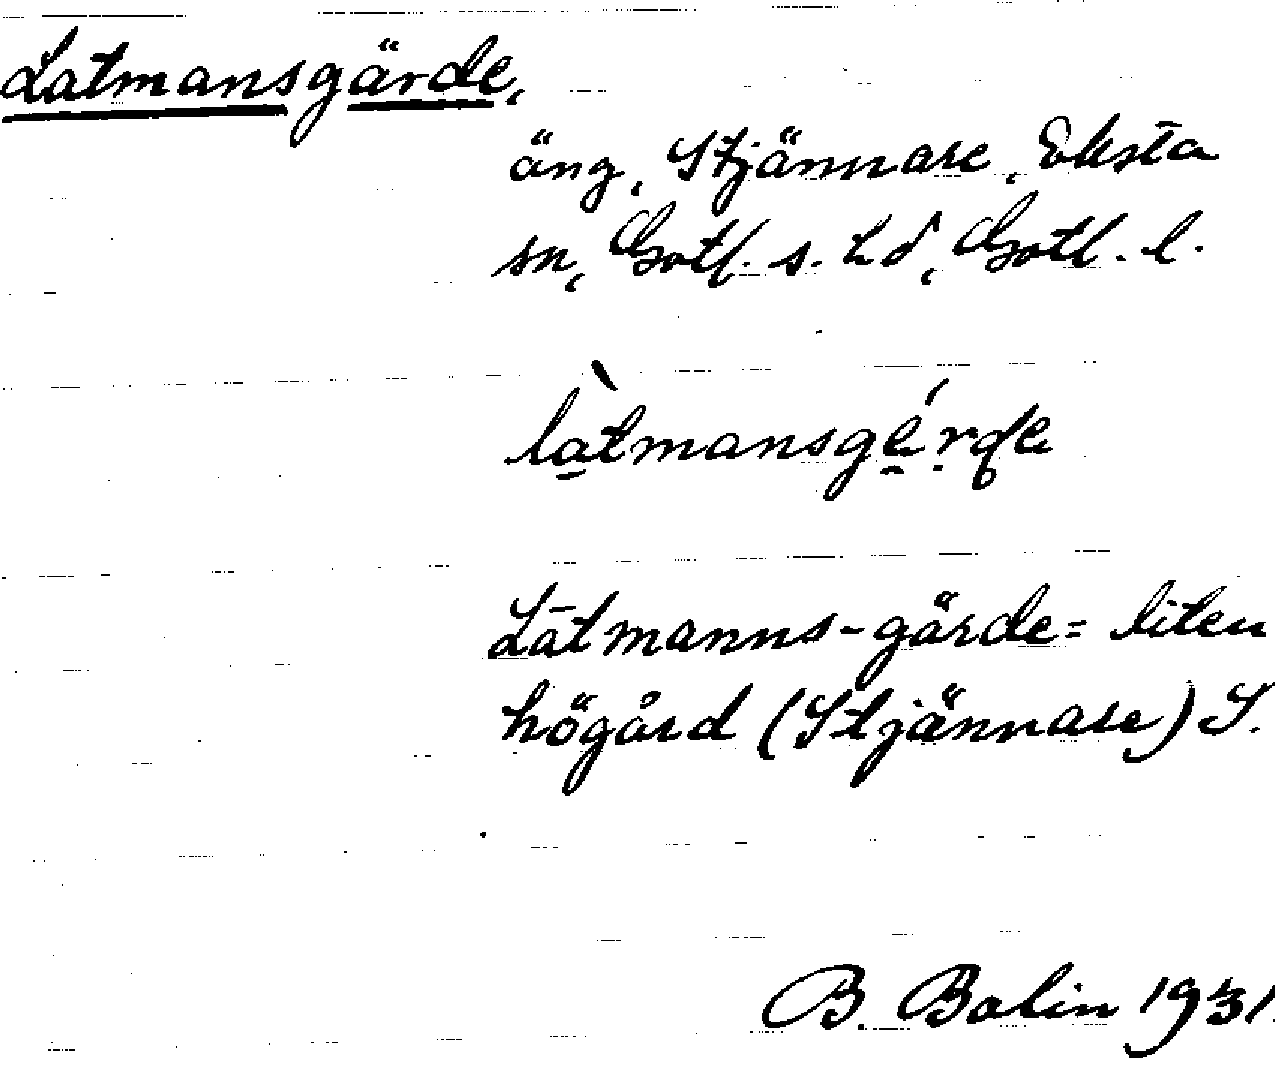 Latmansgärde,
äng, Stjännare, Eksta
sn, Gotl. s. hd, Gotl. l.
làtmansgé̱rde
Latmanns-gärde = liten
högård (Stjännare) S.
B. Bolin 1931.